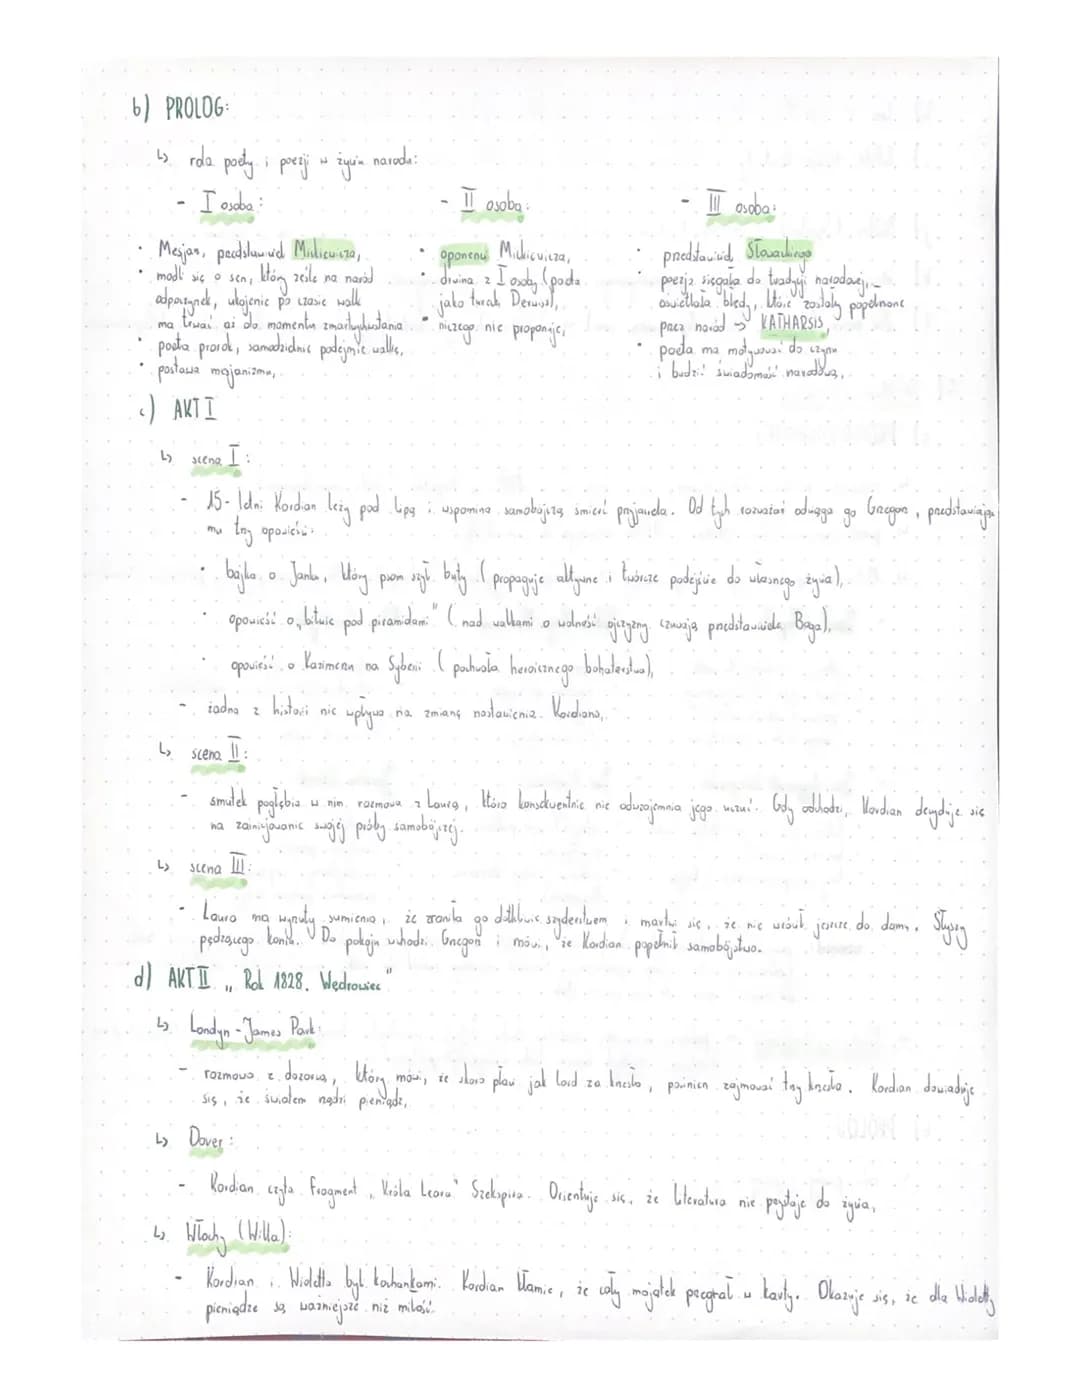 b) PROLOG:
↳ rola poety i poezji w życiu narodu:
- I osoba:
• Mesjan, przedstawiciel Mickiewicza,
• modli się o sen, który ześle na naród
odpoczynek, ukojenie po czasie walk
ma trwać aż do momentu zmartwychwstania
• poeta prorok, samodzielnie podejmie walkę,
• postawa mesjanizmu,
- II osoba:
• oponent Mickiewicza,
• drwina z I osoby (poda
jako turecki Derwisz),
• niczego nie proponuje,
- III osoba:
• przedstawiciel Słowackiego
• poezja sięgała do tradycji narodowej,
oświetlała błędy, które zostały popełnione
przez naród → KATHARSIS,
• poeta ma motywować do czynu
i budzić świadomość narodową,
c) AKT I
↳ scena I:
- 15-letni Kordian leży pod lipą i wspomina samobójczą śmierć przyjaciela. Od tych rozważań odciąga go Grzegorz, przedstawiając
mu trzy opowieści:
• bajka o Janku, który psom szył buty (propaguje aktywne i twórcze podejście do własnego życia),
• opowieść o „bitwie pod piramidami" (nad walkami o wolność ojczyzny czuwają przedstawiciele Boga),
• opowieść o Kazimierzu na Syberii (pochwała heroicznego bohaterstwa),
- żadna z historii nie wpływa na zmianę nastawienia Kordiana,
↳ scena II:
- smutek pogłębia w nim rozmowa z Laurą, która konsekwentnie nie odwzajemnia jego uczuć. Gdy odchodzi, Kordian decyduje się
na zainicjowanie swojej próby samobójczej.
↳ scena III:
- Laura ma wyrzuty sumienia, że zraniła go dotkliwie szyderstwem i martwi się, że nie wrócił jeszcze do domu. Słyszy
pędzącego konia. Do pokoju wchodzi Grzegorz i mówi, że Kordian popełnił samobójstwo.
d) AKT II „Rok 1828. Wędrowiec"
↳ Londyn - James Park:
- rozmowa z dozorcą, który mówi, że skoro płaci jak lord za krzesło, powinien zajmować trzy krzesła. Kordian dowiaduje
się, że światem rządzi pieniądz,
↳ Dover:
- Kordian czyta fragment „Króla Leara" Szekspira. Orientuje się, że literatura nie przystaje do życia,
↳ Włochy (Willa):
- Kordian i Wioletta byli kochankami. Kordian kłamie, że cały majątek przegrał w karty. Okazuje się, że dla Wioletty
pieniądze są ważniejsze niż miłość.